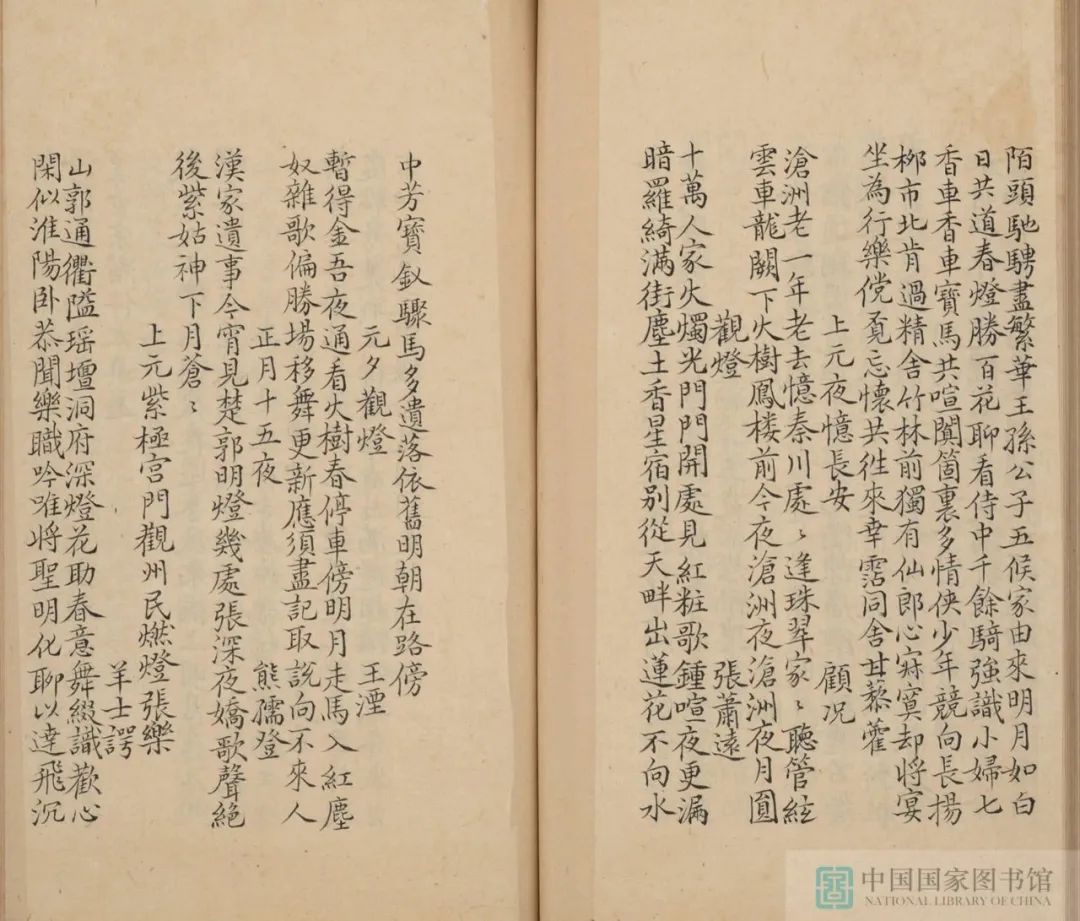 陌頭馳騁盡繁華王孫公子五候家由來明月如白
日共道春燈勝百花聊看侍中千餘騎強識小婦七
香車香車寶馬共喧闐箇裏多情俠少年競向長揚
栁市北肯過精舍竹林前獨有仙郎心寂寞却將宴
坐為行樂儻覓忘懷共徃來幸霑同舍甘藜藿
上元夜憶長安 顧况
滄洲老一年老去憶秦川處〻逢珠翠家〻聽管絃
雲車龍闕下火樹鳳楼前今夜滄洲夜滄洲夜月圓
觀燈 張蕭遠
十萬人家火燭光門門開處見紅粧歌鍾喧夜更漏
暗羅綺滿街塵土香星宿别從天畔出蓮花不向水
中芳寶釵驟馬多遺落依舊明朝在路傍
元夕觀燈 王湮
暫得金吾夜通看火樹春停車傍明月走馬入紅塵
奴雜歌偏勝場移舞更新應須盡記取說向不來人
正月十五夜 熊孺登
漢家遺事今宵見楚郭明燈幾處張深夜嬌歌聲絕
後紫姑神下月蒼〻
上元紫極宮門觀州民燃燈張樂
羊士諤
山郭通衢隘瑶壇洞府深燈花助春意舞綴識歡心
閑似淮陽卧恭聞樂職吟唯將聖明化聊以達飛沉
中国国家图书馆
NATIONAL LIBRARY OF CHINA